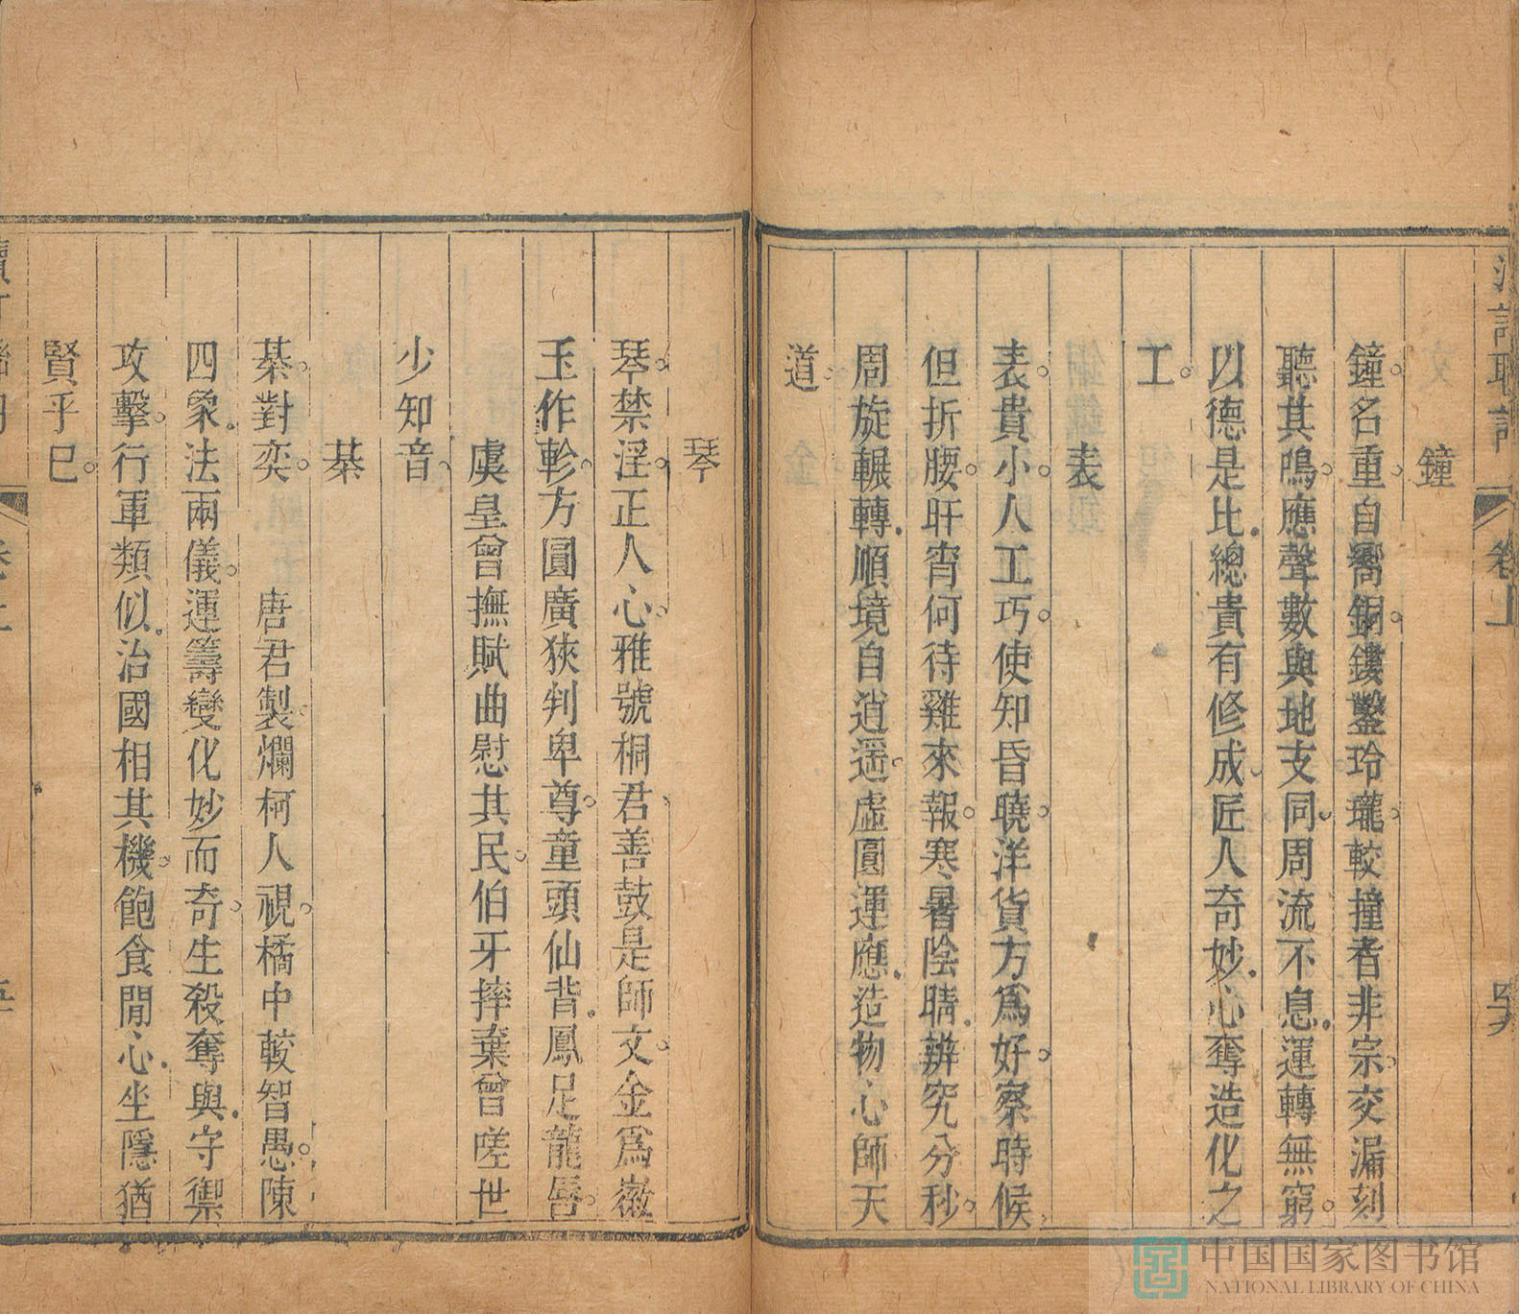 鐘
鐘名重自嚮銅鏤鑿玲瓏較撞者非宗交漏刻
聽其鳴應聲數與地支同周流不息運轉無窮
以德是比總貴有修成匠人奇妙心奪造化之
工
表
表貴小人工巧使知昏曉洋貨方爲好察時候
但折腰旰宵何待雞來報寒暑陰晴辨究分秒
周旋輾轉順境自逍遥虛圓運應造物心師天
道
琴
琴禁淫正人心雅號桐君善鼓是師文金爲徽
玉作軫方圓廣狹判卑尊童頭仙背鳳足龍唇
虞皇曾撫賦曲慰其民伯牙摔棄曾嗟世
少知音
棊
棊對奕唐君製爛柯人視橘中較智愚陳
四象法兩儀運籌變化妙而奇生殺奪與守禦
攻擊行軍類似治國相其機飽食閒心坐隱猶
賢乎已
卷上
中国国家图书馆
NATIONAL LIBRARY OF CHINA